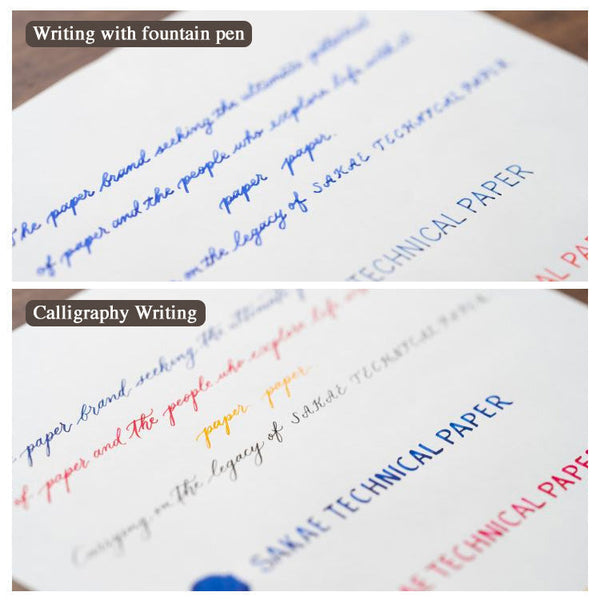 Writing with fountain pen
The paper brand seeking the ultimate potential
of paper and the people who explore life with it
paper paper.
on the legacy of SAKAE TECHNICAL PAPER
TECHNICAL PAPER
PA
Calligraphy Writing
paper brand seeking the ultimate
of paper and the people who explore life
paper paper
Carrying on the legacy of SAKAE TECHNICAL PAPER
SAKAE TECHNICAL PAPER
AE TECHNICAL PAPE